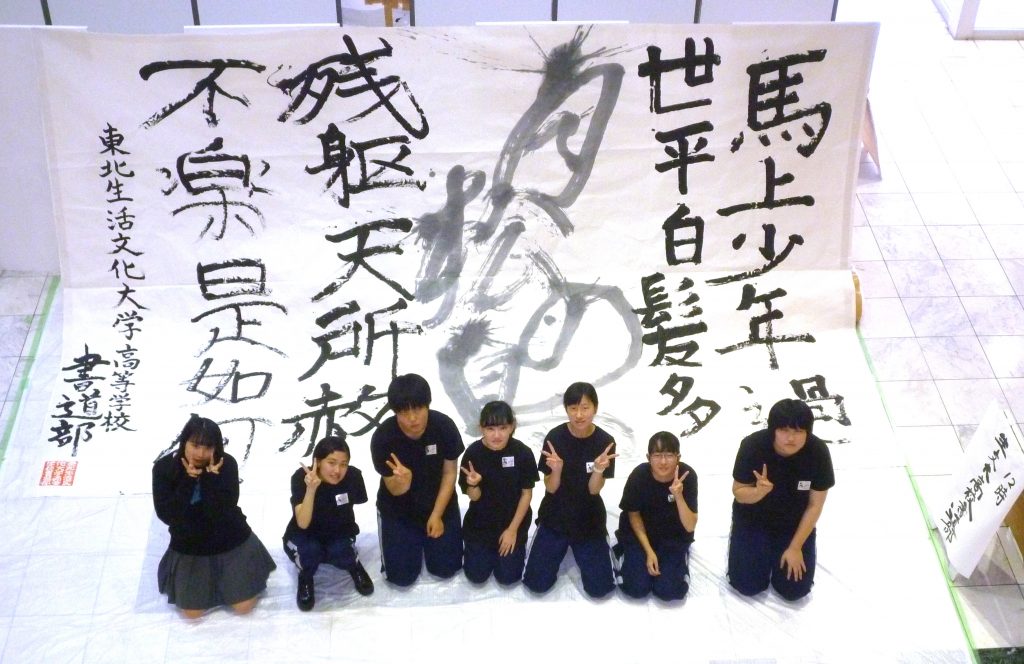 馬上少年過
世平白髪多
残躯天所赦
不楽是如何
東北生活文化大学高等学校
書道部
12時